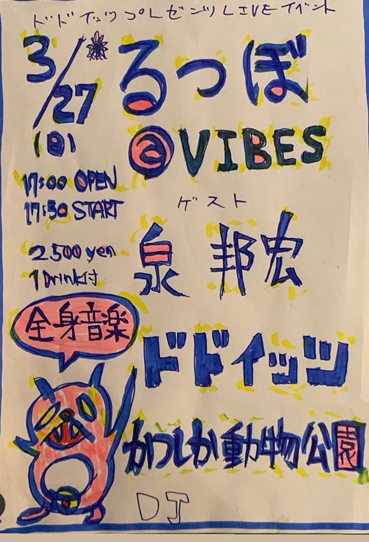 ドドイッツプレゼンツLIVEイベント
3/27
(日)
るつぼ
@VIBES
17:00 OPEN
17:30 START
2,500 yen
1Drink付
ゲスト
泉 邦宏
全身音楽
ドドイッツ
かつしか動物公園
DJ